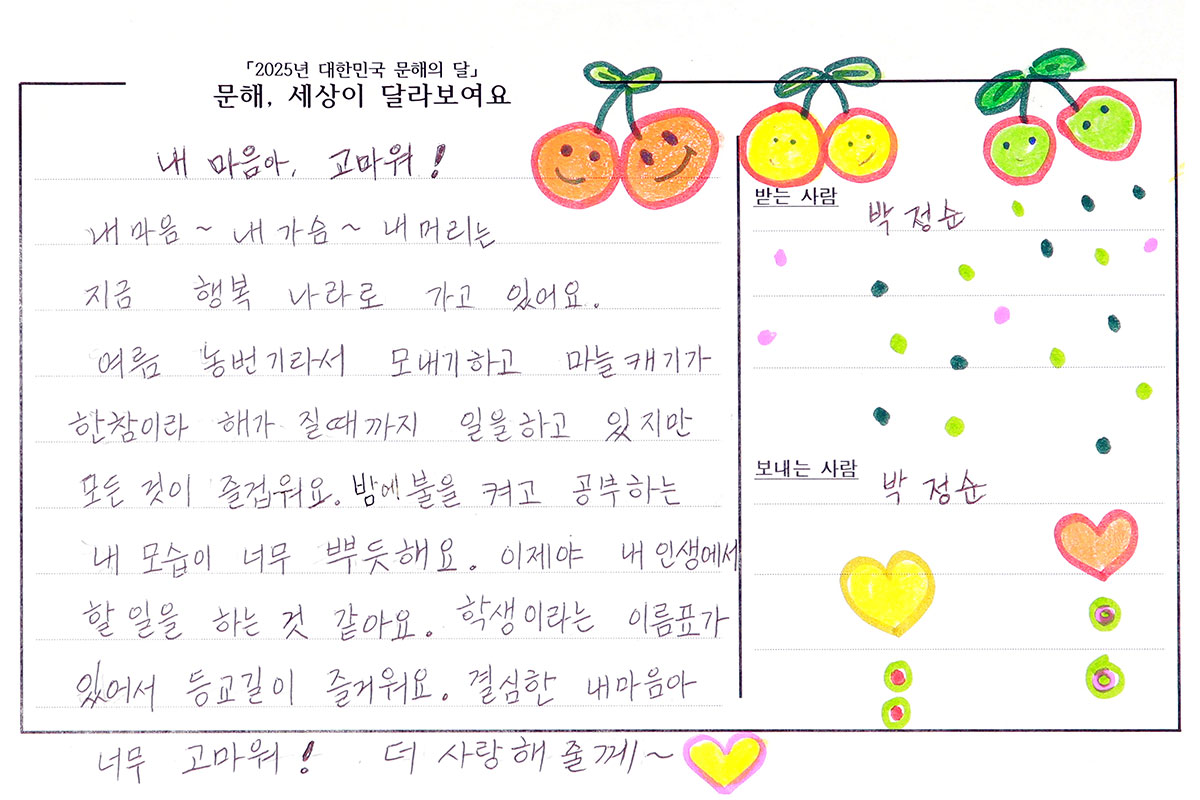 「2025년 대한민국 문해의 달」
문해, 세상이 달라보여요
내 마음아, 고마워!
내마음~ 내가슴~ 내머리는
지금 행복 나라로 가고 있어요.
여름 농번기라서 모내기하고 마늘캐기가
한참이라 해가 질때까지 일을하고 있지만
모든 것이 즐겁워요. 밤에 불을 켜고 공부하는
내 모습이 너무 뿌듯해요. 이제야 내인생에서
할일을 하는 것 같아요. 학생이라는 이름표가
있어서 등교길이 즐거워요. 결심한 내마음아
너무 고마워! 더 사랑해줄께~
받는 사람
박정순
보내는 사람
박정순